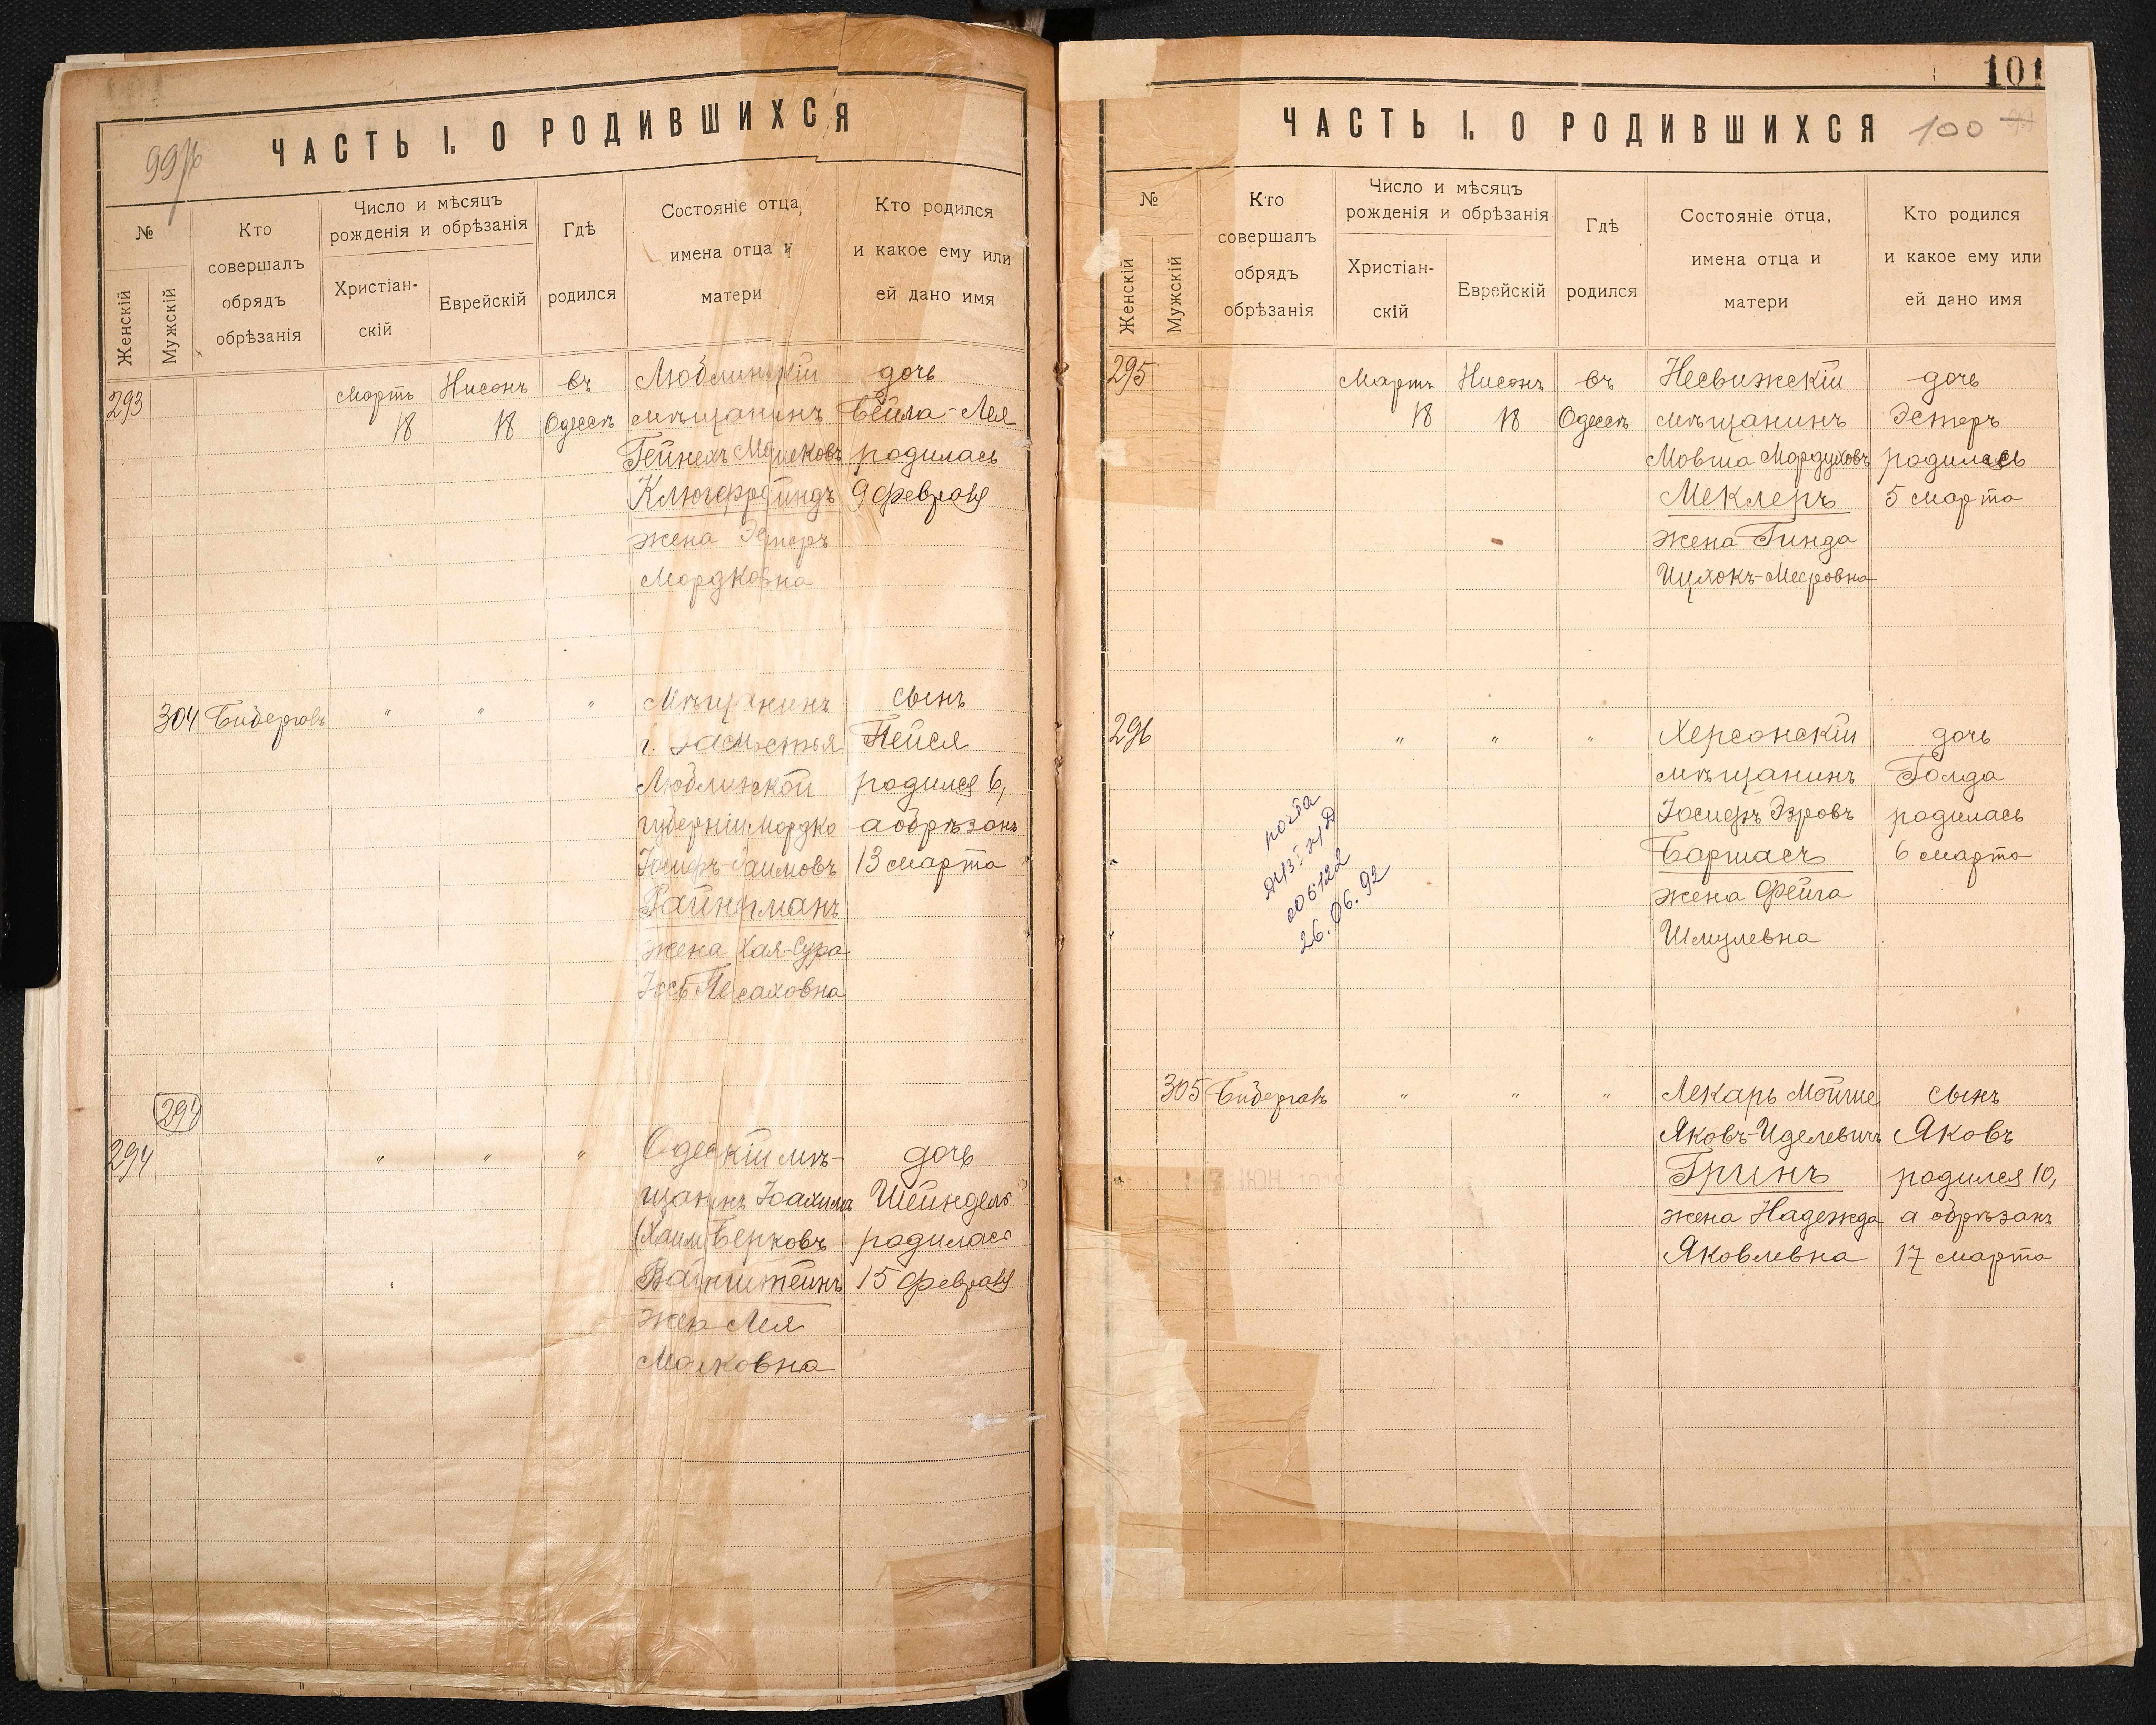 99 об
ЧАСТЬ I. О РОДИВШИХСЯ
№
Женскій
Мужскій
Кто
совершалъ
обрядъ
обрѣзанія
Число и мѣсяцъ
рожденія и обрѣзанія
Христіан-
скій
Еврейскій
Гдѣ
родился
Состояніе отца,
имена отца и
матери
Кто родился
и какое ему или
ей дано имя
293
Мартъ
18
Нисонъ
18
въ
Одессѣ
Люблинскій
мѣщанинъ
Гейнехъ
жена Эстеръ
Мордковна
дочь
Бейла-Лея
родилась
9 февраля
304 Бидерговъ
" " "
Мѣщанинъ
г. Замостья
Люблинской
губерніи Мордко
Іосифъ-Хаимовъ
жена Хая-Сура
сынъ
Пейся
родился 6,
а обрѣзанъ
13 марта
294
294
" " "
Одесскій мѣ-
щанинъ Іоахимъ
(Хаим Берковъ
Вайнштейнъ
жена Лея
дочь
Шейндель
родилась
15 февраля
101
ЧАСТЬ I. О РОДИВШИХСЯ
100
№
Женскій
Мужскій
Кто
совершалъ
обрядъ
обрѣзанія
Число и мѣсяцъ
рожденія и обрѣзанія
Христіан-
скій
Еврейскій
Гдѣ
родился
Состояніе отца,
имена отца и
матери
Кто родился
и какое ему или
ей дано имя
295
Мартъ
18
Нисонъ
18
въ
Одессѣ
Несвижскій
мѣщанинъ
Мовша Мордуховъ
Меклеръ
жена Гинда
Ицхокъ-Мееровна
дочь
Эстеръ
родилась
5 марта
296
" " "
Херсонскій
мѣщанинъ
Іосифъ Эзровъ
Баршасъ
жена Фейга
Шмулевна
дочь
Голда
родилась
6 марта
006122
26.06.92
305 Бидерговъ
" " "
Лекарь Мойше
Яковъ-Иделевичъ
Гринъ
жена Надежда
Яковлевна
сынъ
Яковъ
родился 10,
а обрѣзанъ
17 марта